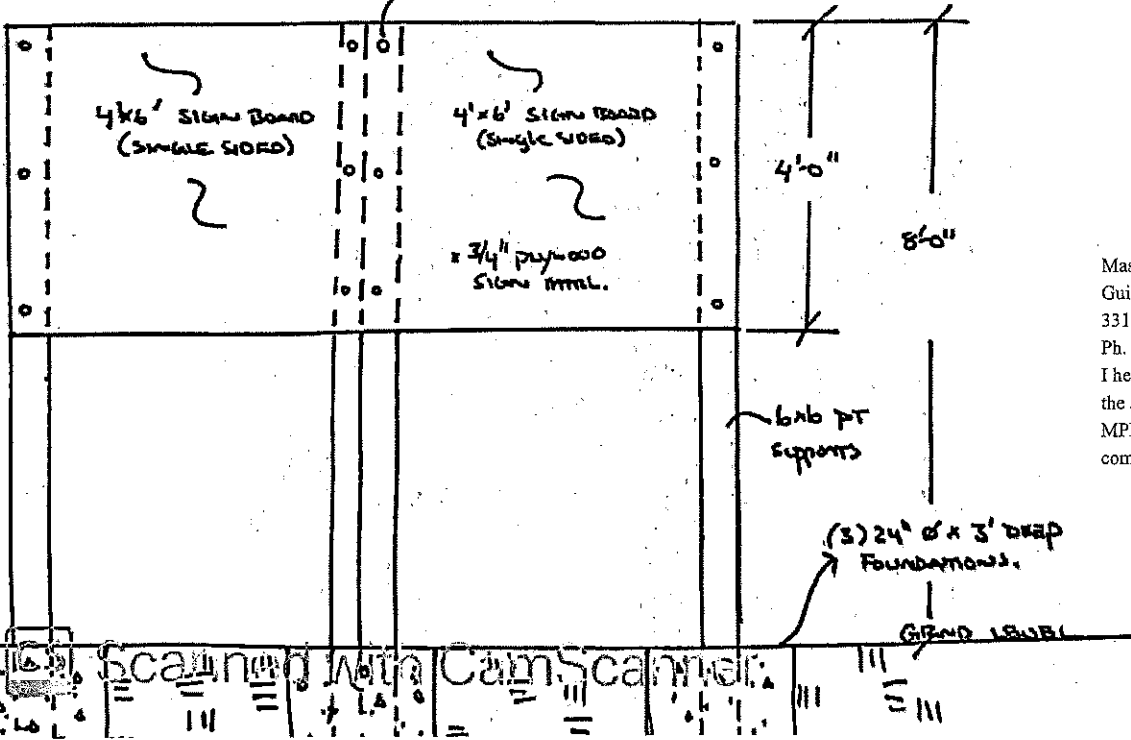 4'x6' SIGN BOARD
(SINGLE SIDED)
4'x6' SIGN BOARD
(Single SIDED)
x 3/4" plywood
SIGN MTRL.
4'-0"
8'-0"
6x6 PT
Supports
(3) 24" Ø x 3' DEEP
FOUNDATIONS.
GRAND LEVEL
Mas
Gui
331
Ph.
I he
the
MP
com
Scanned with CamScanner